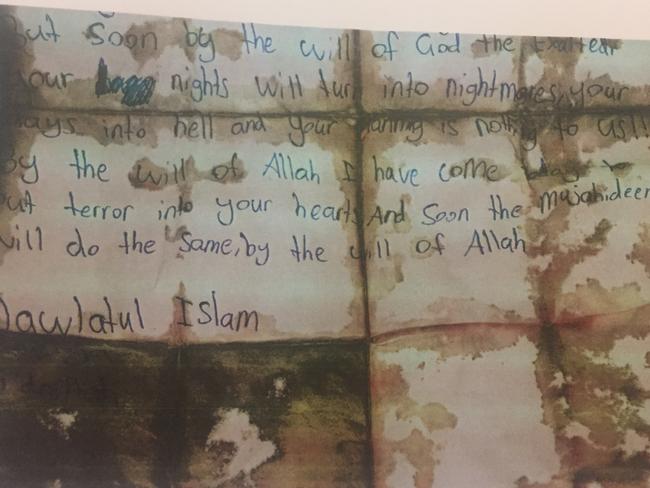 ut Soon by the will of God the Exalted
our nights will turn into nightmares, your
ays into hell and your is nothing to us!!
By the will of Allah I have come today to
ut terror into your hearts And Soon the mujahideen
will do the same, by the will of Allah
Dawlatul Islam